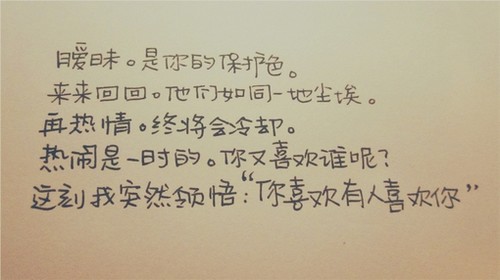 暧昧。是你的保护色。
来来回回。他们如同一地尘埃。
再热情。终将会冷却。
热闹是一时的。你又喜欢谁呢?
这刻我突然领悟:“你喜欢有人喜欢你”